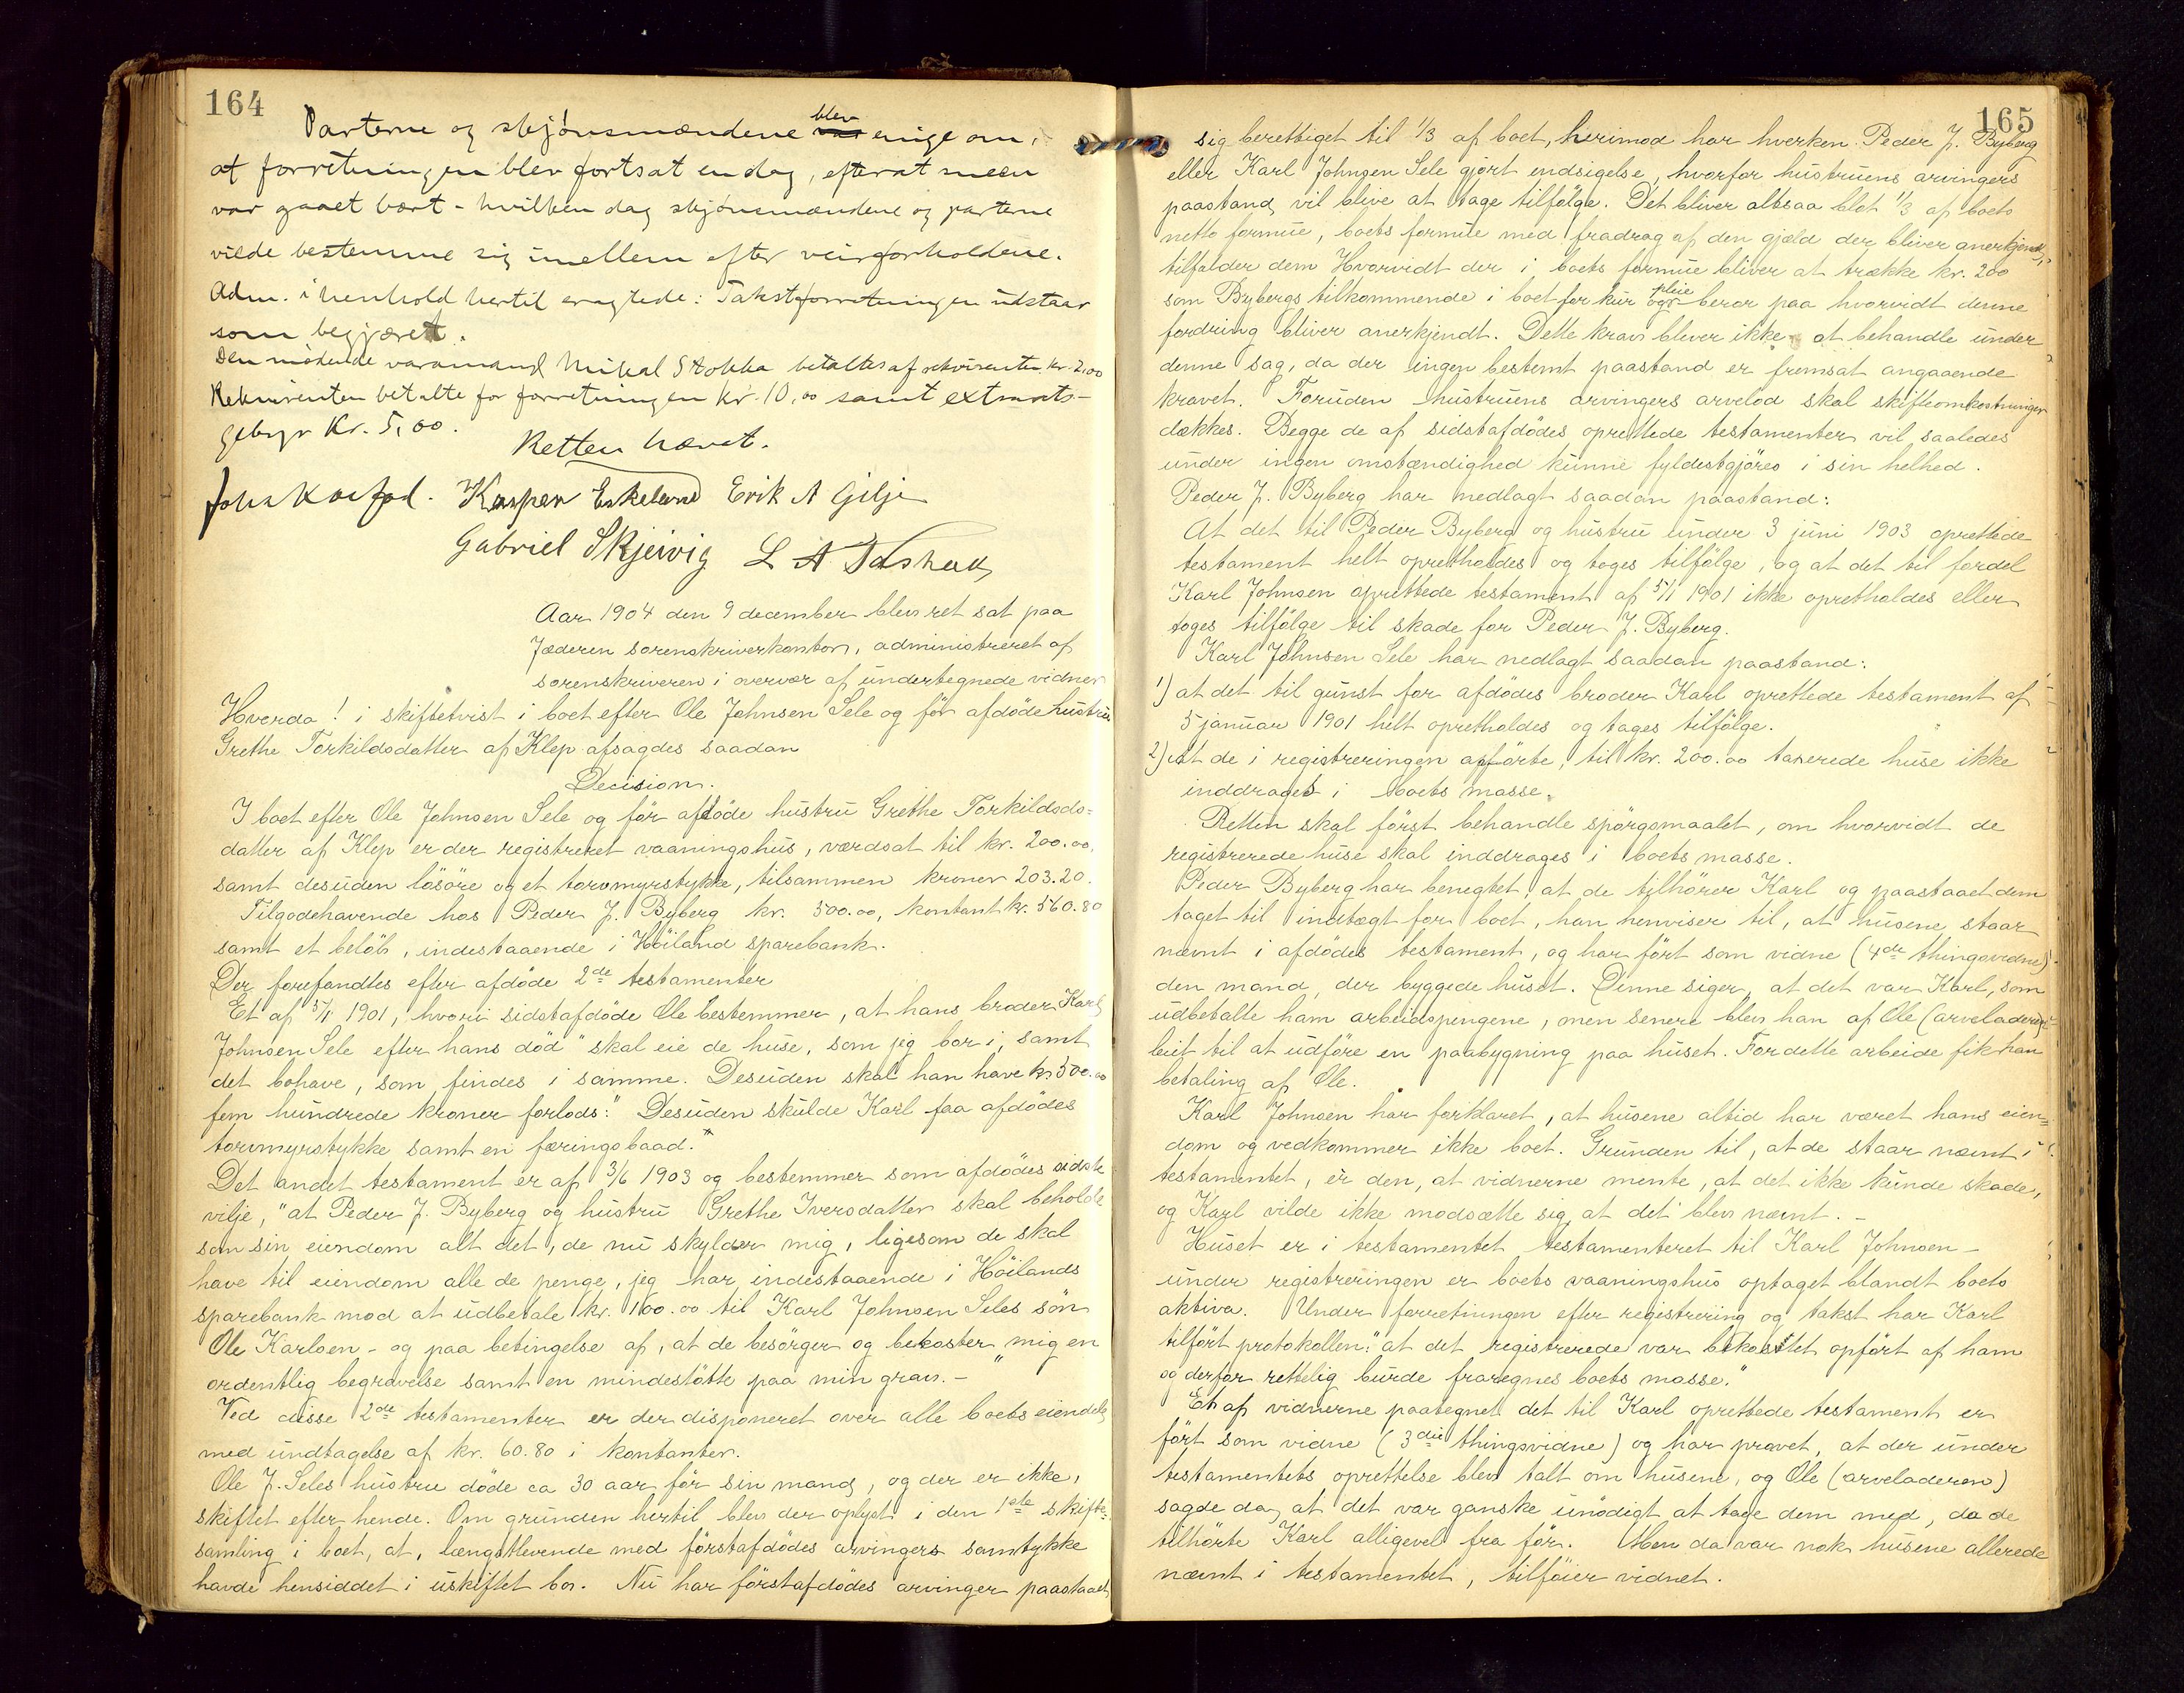 164
Parterne og skjønsmændene blev enige om,
at forretningen blev fortsat en dag, efterat sneen
var gaaet bort - hvilken dag skjønsmændene og parterne
vilde bestemme sig imellem efter veirforholdene.
Adm. i henhold hertil eragtede: Takstforretningen udstaar
som begjæret.
Den mødende varamand Mikal Stokka betaltes af rekvirenten kr. 2,00
Rekvirenten betalte for forretningen kr. 10,00 samt extrakts-
gebyr Kr. 5,00.
Retten hævet.
John Koefod. Kasper Eskeland Erik A Gilje
Gabriel Skjeivig L A
Aar 1904 den 9 december blev ret sat paa
Jæderen sorenskriverkontor, administreret af
sorenskriveren i overvær af undertegnede vidner
Hvorda! i skiftetvist i boet efter Ole Johnsen Sele og før afdøde hustru
Grethe Torkildsdatter af Klep afsagdes saadan
Decision.
I boet efter Ole Johnsen Sele og før afdøde hustru Grethe Torkildsds-
datter af Klep er der registreret vaaningshus, værdsat til kr. 200.00,
samt desuden løsøre og et torvmyrstykke, tilsammen kroner 203.20.
Tilgodehavende hos Peder J. Byberg kr. 500.00, kontant kr. 560.80
samt et beløb, indestaaende i Höiland sparebank.
Der forefandtes efter afdøde 2de testamenter
Et af 5/1 1901, hvori sidstafdøde Ole bestemmer, at hans broder Karl
Johnsen Sele efter hans død "skal eie de huse, som jeg bor i, samt
det bohave, som findes i samme. Desuden skal han have kr 500.00
fem hundrede kroner forlods." Desuden skulde Karl faa afdødes
torvmyrstykke samt en færingsbaad."
Det andet testament er af 3/6 1903 og bestemmer som afdødes sidste
vilje, "at Peder J. Byberg og hustru Grethe Iversdatter skal beholde
som sin eiendom alt det, de nu skylder mig, ligesom de skal
have til eiendom alle de penge, jeg har indestaaende i Höilands
sparebank mod at udbetale kr. 100.00 til Karl Johnsen Seles søn
Ole Karlsen - og paa betingelse af, at de besørger og bekoster mig en
ordentlig begravelse samt en mindestøtte paa min grav. - "
Ved disse 2de testamenter er der disponeret over alle boets eiendele
med undtagelse af kr. 60.80 i kontanter.
Ole J. Seles hustru døde ca 30 aar før sin mand, og der er ikke,
skiftet efter hende. Om grunden hertil blev der oplyst i den 1ste skifte-
samling i boet, at, længstlevende med førstafdødes arvingers samtykke
havde hensiddet i uskiftet bo. Nu har førstafdødes arvinger paastaaet
165
sig berettiget til 1/3 af boet, herimod har hverken Peder J. Byberg
eller Karl Johnsen Sele gjort indsigelse, hvorfor hustruens arvingers
paastand vil blive at tage tilfølge. Det bliver altsaa blot 1/3 af boets
netto formue, boets formue med fradrag af den gjæld der bliver anerkjendt,
tilfalder dem Hvorvidt der i boets formue bliver at trække kr. 200
som Bybergs tilkommende i boet for kur og pleie beror paa hvorvidt denne
fordring bliver anerkjendt. Dette krav blever ikke at behandle under
denne sag, da der ingen bestemt paastand er fremsat angaaende
kravet. Foruden hustruens arvingers arvelod skal skifteomkostninger
dækkes. Begge de af sidstafdødes oprettede testamenter vil saaledes
under ingen omstændighed kunne fyldestgjøres i sin helhed.
Peder J. Byberg har nedlagt saadan paastand:
At det til Peder Byberg og hustru under 3 juni 1903 oprettede
testament helt opretholdes og tages tilfølge, og at det til fordel
Karl Johnsen oprettede testament af 5/1 1901 ikke opretholdes eller
toges tilfølge til skade for Peder J. Byberg.
Karl Johnsen Sele har nedlagt saadan paastand:
1) at det til gunst for afdødes broder Karl oprettede testament af
5 januar 1901 helt opretholdes og tages tilfølge.
2) At de i registreringen opførte, til kr. 200.00 taxerede huse ikke
inddrages i boets masse.
Retten skal først behandle spørgsmaalet, om hvorvidt de
registrerede huse skal inddrages i boets masse.
Peder Byberg har benegtet, at de tilhører Karl og paastaaet dem
taget til indtægt for boet, han henviser til, at husene staar
nævnt i afdødes testament, og har ført som vidne (4de thingsvidne)
den mand, der byggede huset. Denne siger, at det var Karl, som
udbetalte ham arbeidspengene, men senere blev han af Ole (arveladeren)
leiet til at udføre en paabygning paa huset. For dette arbeide fik han
betaling af Ole.
Karl Johnsen har forklaret, at husene altid har været hans eien-
dom og vedkommer ikke boet. Grunden til, at de staar nævnt i
testamentet, er den, at vidnerne mente, at det ikke kunde skade,
og Karl vilde ikke modsætte sig at det blev nævnt. -
Huset er i testamentet testamenteret til Karl Johnsen -
under registreringen er boets vaaningshus optaget blandt boets
aktiva. Under forretningen efter registrering og takst har Karl
tilført protokollen: "at det registrerede var bekostet opført af ham
og derfor rettelig burde fraregnes boets masse."
Et af vidnerne paategnet det til Karl oprettede testament er
ført som vidne (3die thingsvidne) og har provet, at der under
testamentets oprettelse blev talt om husene, og Ole (arveladeren)
sagde da, at det var ganske unødigt at tage dem med, da de
tilhørte Karl alligevel fra før. Men da var nok husene allerede
nævnt i testamentet, tilføier vidnet.